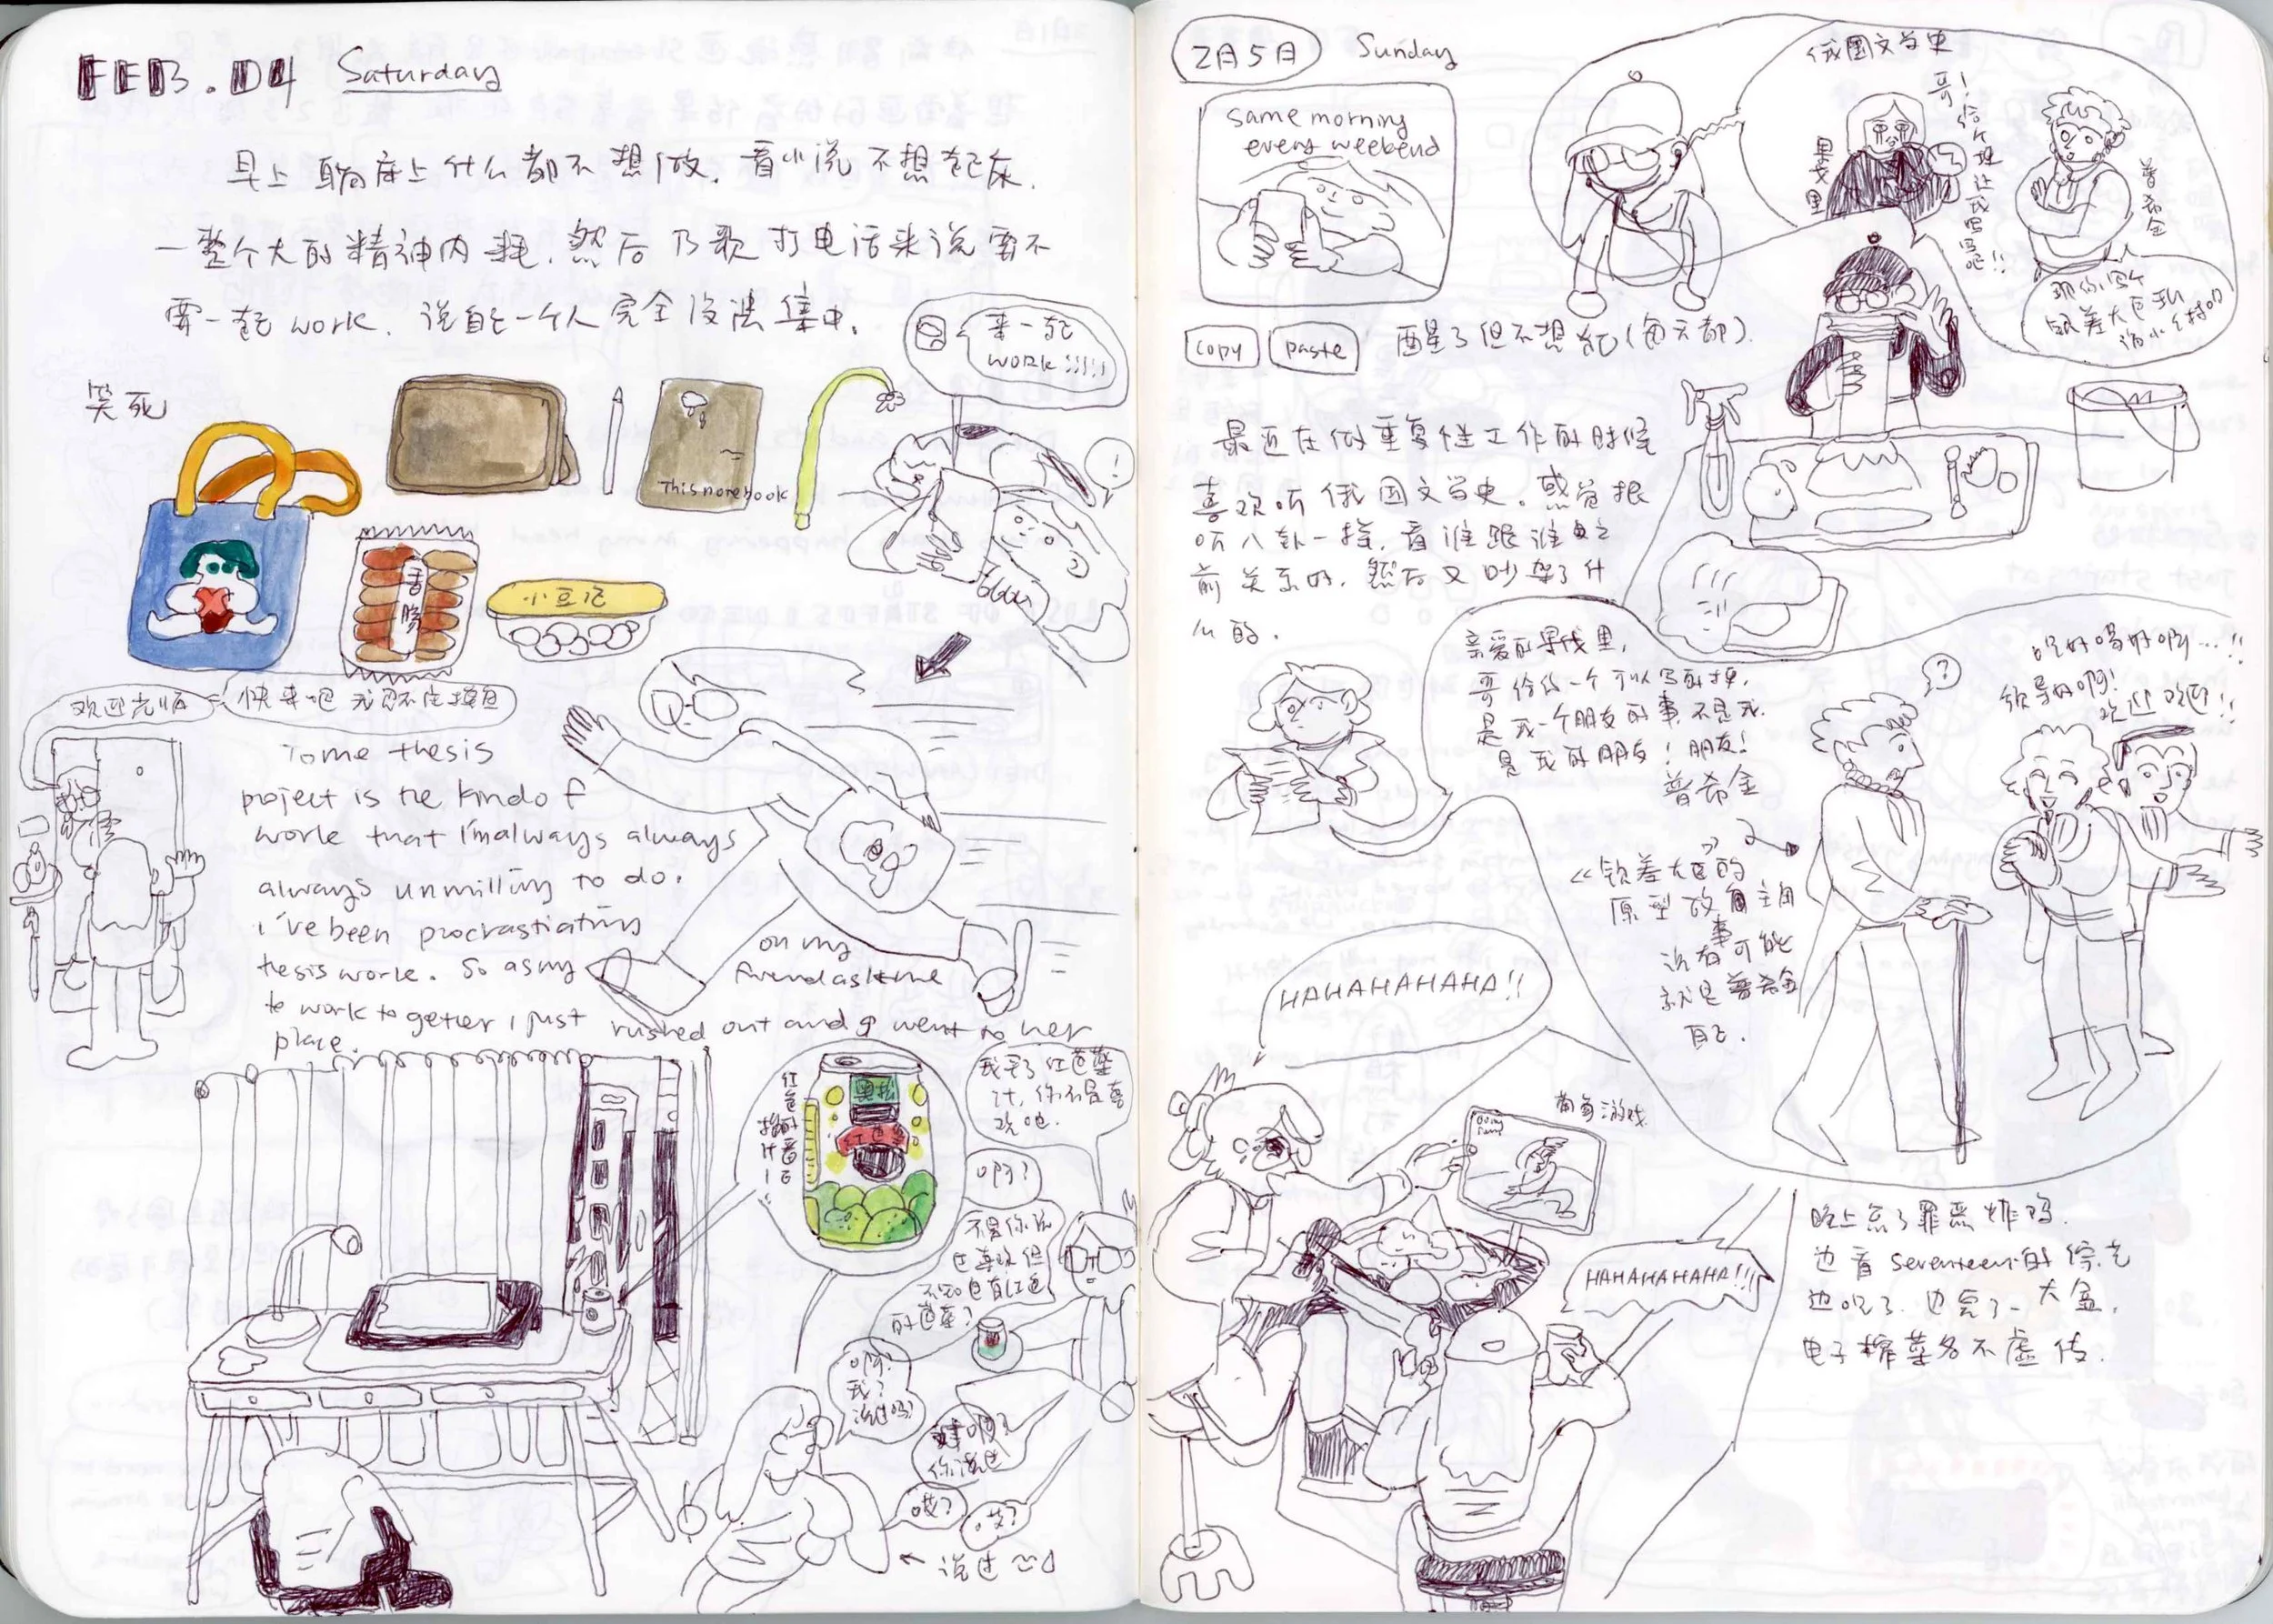 FEB.04 Saturday
早上躺床上什么都不想做.看小说不想起床.
一整个大的精神内耗.然后乃歌打电话来说要不
要一起work.说自己一个人完全没法集中.
来一起
work!!!!!
笑死
This notebook
!
blau
香肠
小豆花
欢迎光临
快来吧 我忍不住摸鱼
Tome thesis
project is the kind of
work that I'm always always
always unwilling to do.
i've been procrastinating
thesis work. So as my
on my
friend ask me
to work together I just rushed out and went to her
place.
红色芭乐
我买了红芭乐
汁,你不是喜
欢吃.
啊?
不是你说
过喜欢但
不知道有红色
的芭乐?
啊?
我?
说过吗?
你说过
哎?
哎?
← 说过
2月5日 Sunday
same morning
every weekend
copy paste 醒了但不想起(每天都).
俄国文学史
哥!给个梗让我写写吧!!
果戈里
普希金
那你写个
钦差大臣到
访小村吧
最近在做重复性工作的时候
喜欢听俄国文学史.感觉很
听八卦一样.看谁跟谁是之
前关系的.然后又吵架了什
么的.
亲爱的果戈里,
哥给你一个可以写的梗,
是我一个朋友的事,不是我.
是我的朋友!朋友!
普希金
?
吃好喝好啊...!!
领导好啊!
欢迎欢迎!!
《钦差大臣》的
原型故事主角
说有可能
就是普希金
自己.
HAHAHAHAHA!!
葡萄游戏
HAHAHAHAHA!!
晚上点了罪恶炸鸡.
边看seventeen的综艺
边吃了.也完了一大盒.
电子榨菜名不虚传.